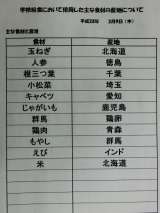 学校給食において使用した主な食材の産地について
平成28年 3月9日（水）
主な食材と産地
食材 産地
玉ねぎ 北海道
人参 徳島
根三つ葉 千葉
小松菜 埼玉
キャベツ 愛知
じゃがいも 鹿児島
鶏卵 群馬
鶏肉 青森
もやし 群馬
えび インド
米 北海道